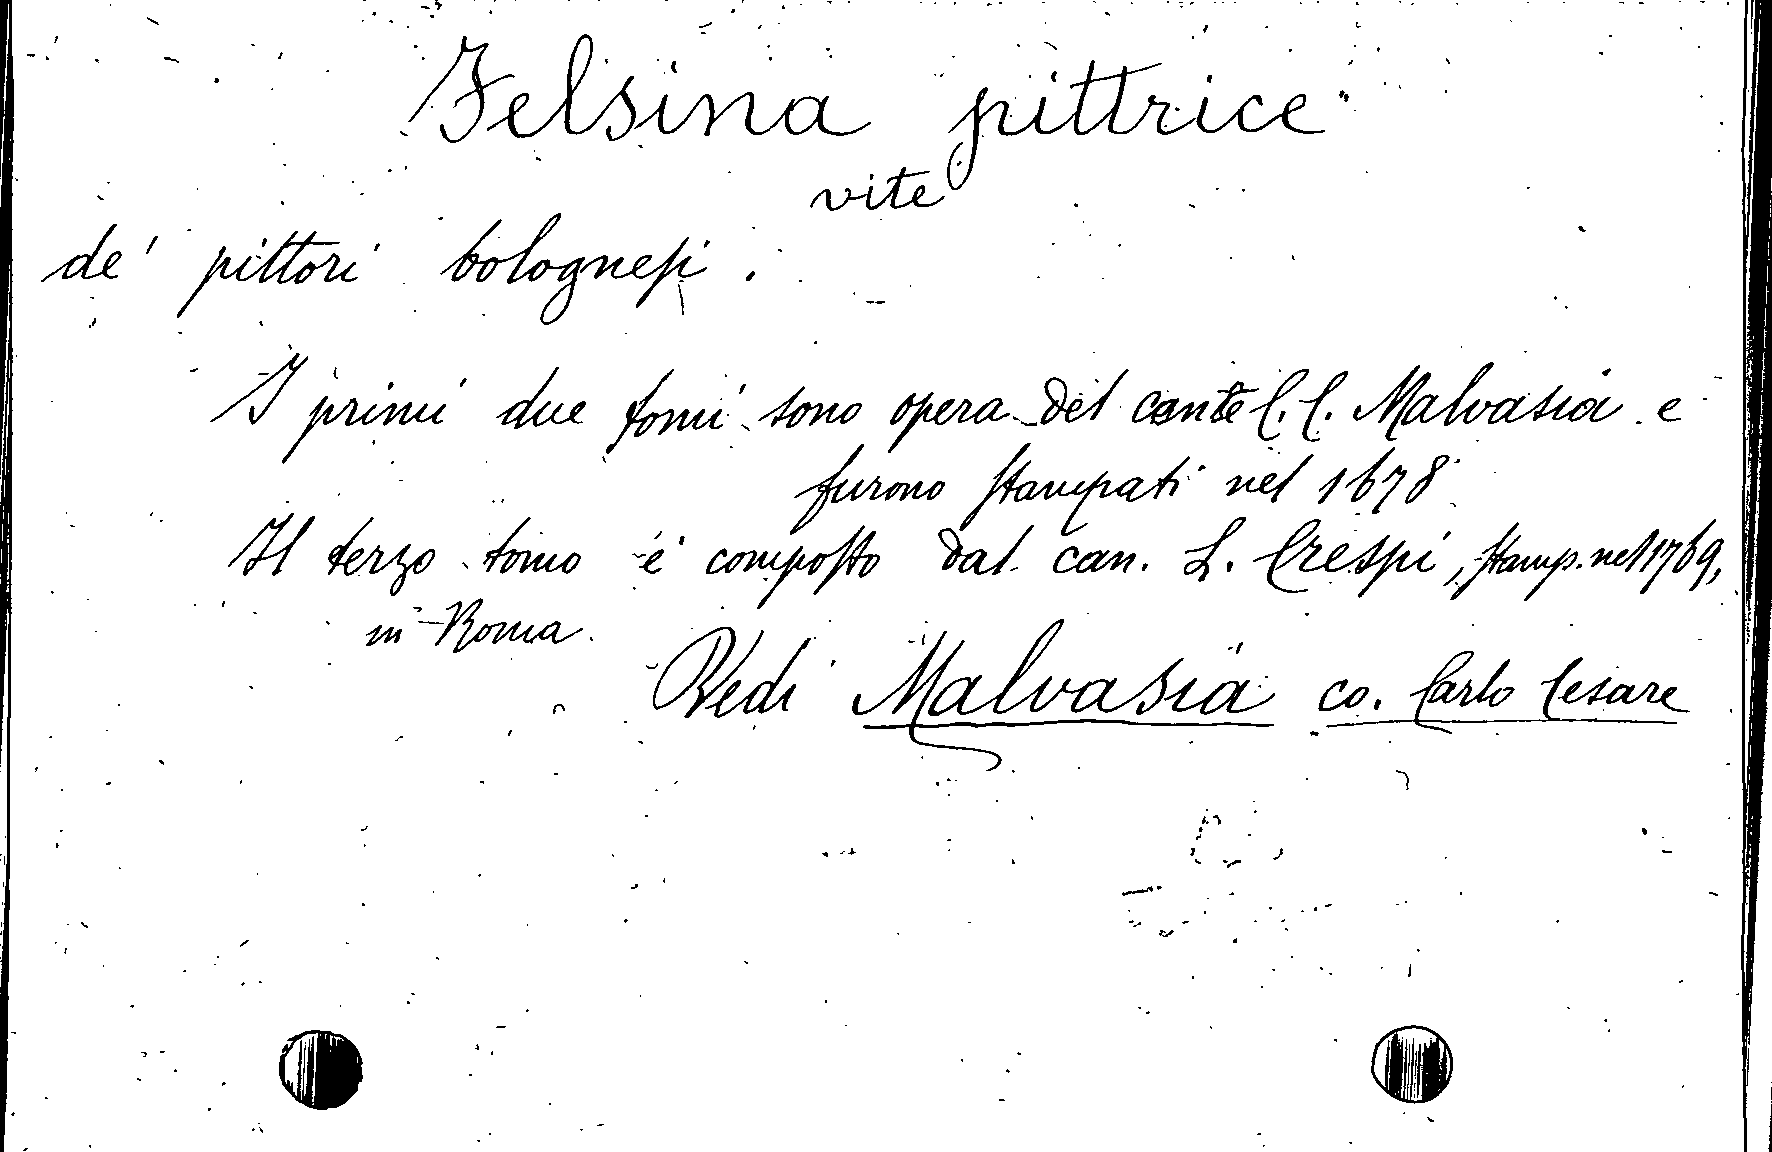 Felsina pittrice
vite
de' pittori bolognesi.
I primi due tomi sono opera del conte C. C. Malvasia e
furono stampati nel 1678
Il terzo tomo è composto dal can. L. Crespi, stamp. nel 1769,
in Roma.
Vedi Malvasia co. Carlo Cesare